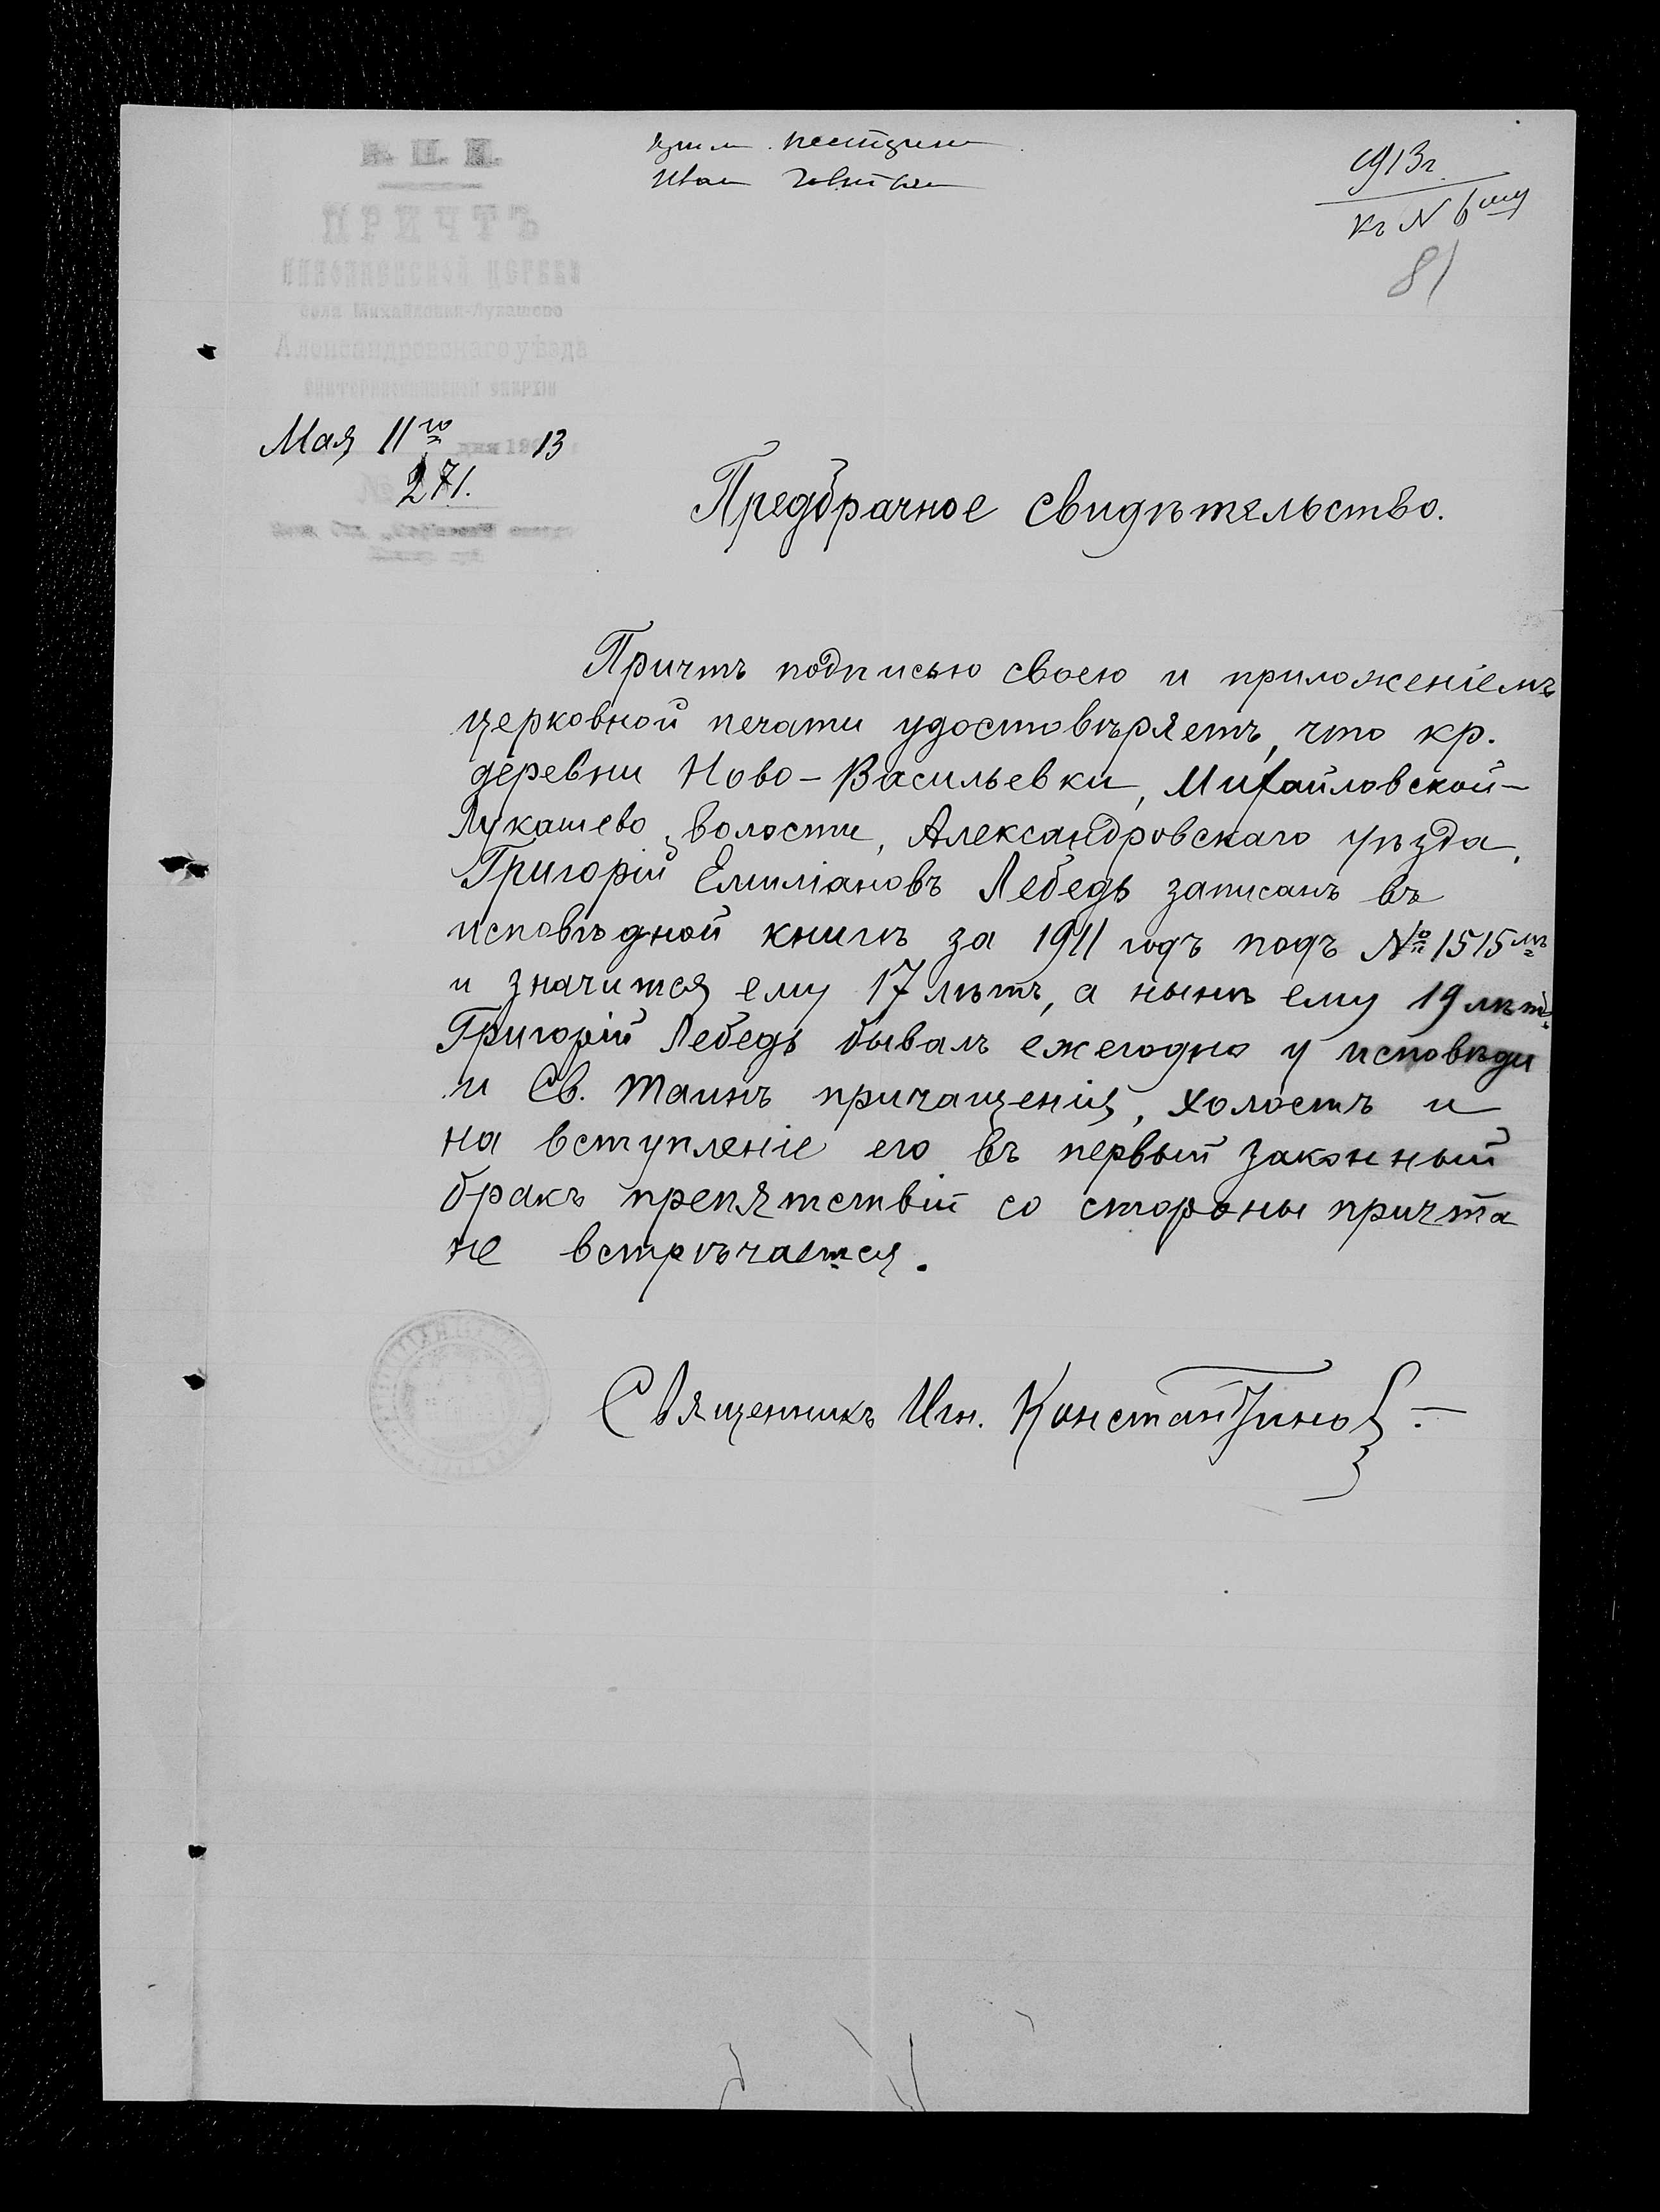 1913 г.
къ N 6му
81
В. П. И.
ПРИЧТЪ
НИКОЛАЕВСКОЙ ЦЕРКВИ
села Михайловка-Лукашево
Александровскаго уѣзда
ЕКАТЕРИНОСЛАВСКОЙ ЕПАРХІИ
Мая 11го дня 1913
№ 271.
Предбрачное свидѣтельство.
Причтъ подписью своею и приложеніемъ
церковной печати удостовѣряетъ, что кр.
деревни Ново-Васильевки, Михайловской-
Лукашево волости, Александровскаго уѣзда,
Григорій Емиліановъ Лебедь записанъ въ
исповѣдной книгѣ за 1911 годъ подъ № 1515мъ
и значится ему 17 лѣтъ, а нынѣ ему 19 лѣтъ.
Григорій Лебедь бывалъ ежегодно у исповѣди
и Св. Таинъ причащенія, холостъ и
на вступленіе его въ первый законный
бракъ препятствій со стороны причта
не встрѣчается.
Священникъ Игн. Константинов